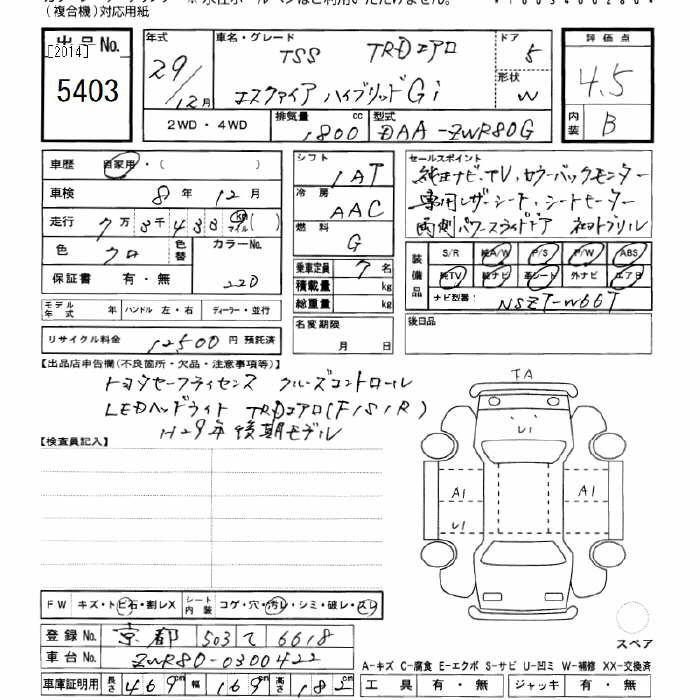 (複合機)対応用紙
出品No. 年式 車名・グレード TSS TRDエアロ ドア 5 評価点
[2014] 5403 29/12月 エスクァイア ハイブリッドGi 形状 W 4.5
2WD・4WD 排気量 1800 cc 型式 DAA-ZWR80G 内装 B
車歴 自家用・( ) シフト 1AT セールスポイント
車検 8年12月 冷房 AAC 純正ナビ、TV、カラーバックモニター
走行 7万3千433 km マイル ( ) 専用レザーシート、シートヒーター
燃料 G 両側パワースライドドア
色 クロ 色替 カラーNo. 220 乗車定員 7名 装備品 S/R 純A/W P/S P/W ABS
保証書 有・無 積載量 kg 純TV 純ナビ 革シート 外ナビ エアB
総重量 kg ナビ型番: NSZT-W66T
モデル年式 年 ハンドル 左・右 ディーラー・並行 名変期限 月 日 後日品
リサイクル料金 12500円 預託済
【出品店申告欄(不良箇所・欠品・注意事項等)】
トヨタセーフティセンス クルーズコントロール
LEDヘッドライト TRDエアロ(F/S/R)
H29年後期モデル
TA
U1
【検査員記入】
A1 A1
U1
FW キズ・トビ石・割レX シート内装 コゲ・穴・汚レ・シミ・破レ・スレ
登録No. 京都 503 て 6618
スペア
車台No. ZWR80-0300422
A-キズ C-腐食 E-エクボ S-サビ U-凹ミ W-補修 XX-交換済
車庫証明用 長さ 469cm 幅 169cm 高さ 182cm 工具 有・無 ジャッキ 有・無